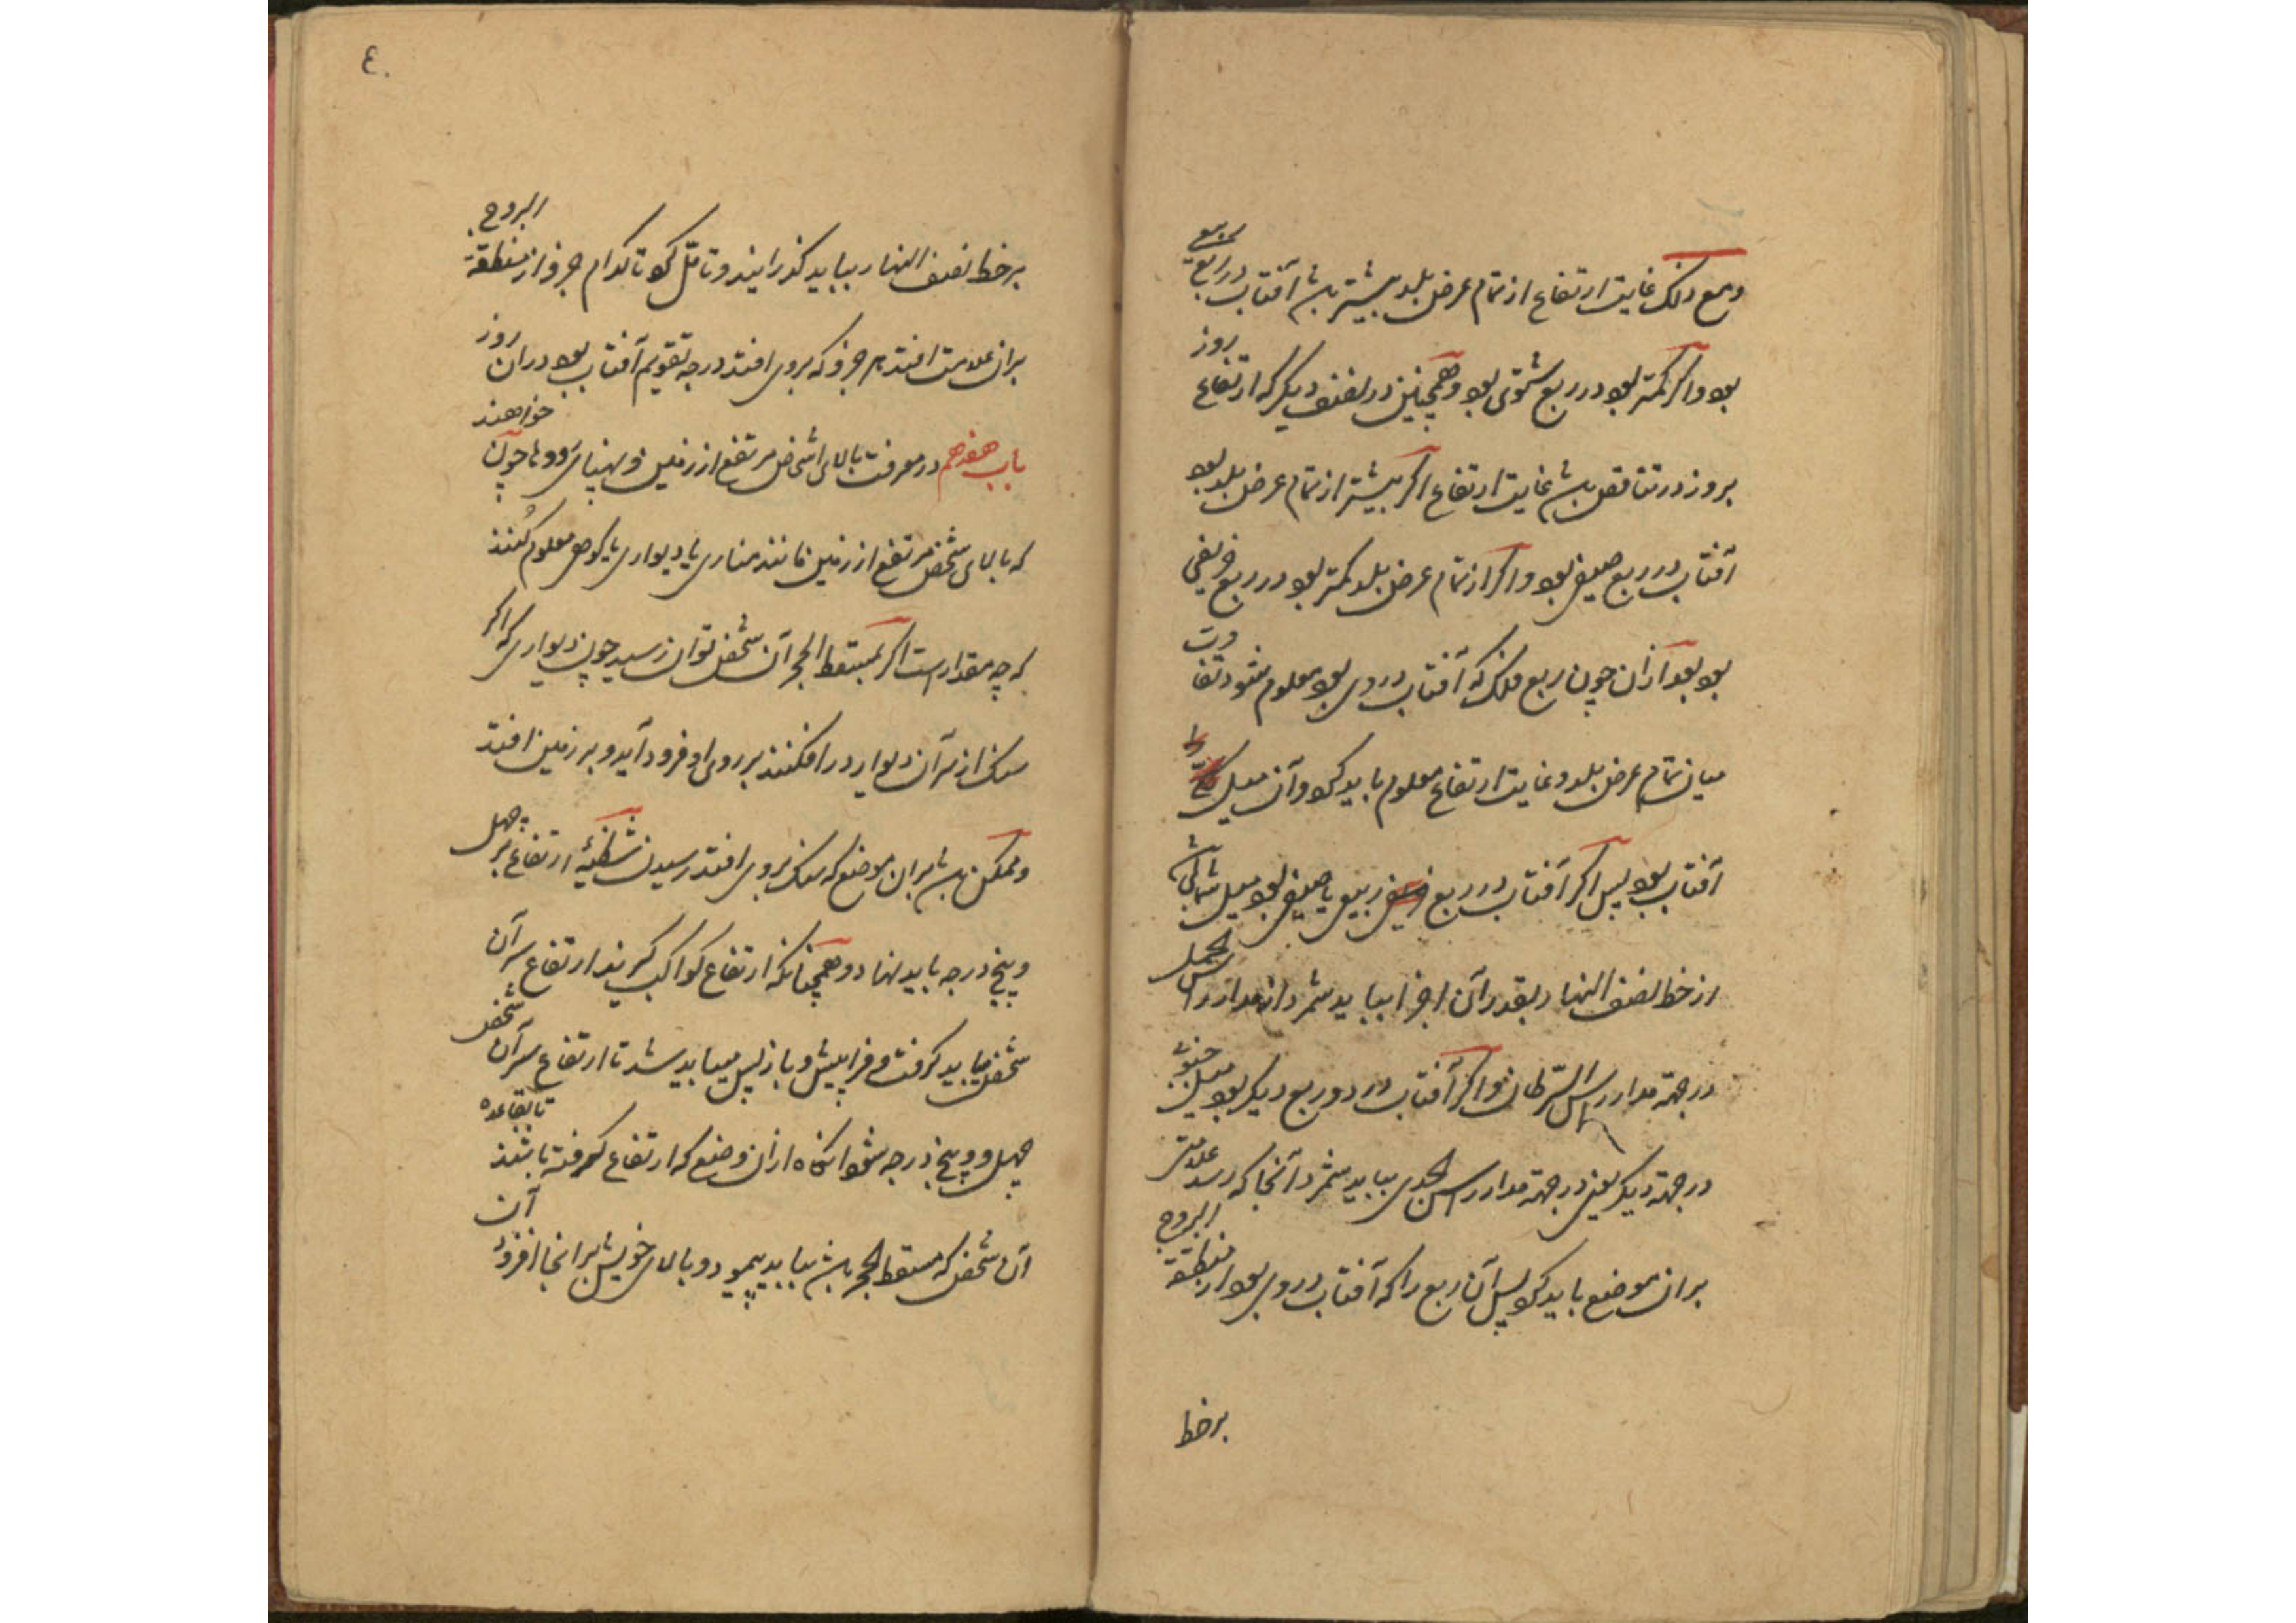 ومع ذلک غایت ارتفاع از تمام عرض بلد بیشتر باشد آفتاب در ربع ربیعی
بود و اگر کمتر بود در ربع شتوی بود و همچنین در نصف دیگر که ارتفاع روز
بروز در تناقص باشد غایت ارتفاع اگر بیشتر از تمام عرض بلد بود
آفتاب در ربع صیفی بود و اگر از تمام عرض بلد کمتر بود در ربع خریفی
بود بعد ازان چون ربع فلک که آفتاب در وی بود معلوم شود تفاوت
میان تمام عرض بلد و غایت ارتفاع معلوم باید کرد و آن میل
آفتاب بود پس اگر آفتاب در ربع ربیعی یا صیفی بود میل شمالی باشد
از خط نصف النهار بقدر آن اجزا بباید شمرد از مدار راس الحمل
در جهة مدار راس السرطان و اگر آفتاب در دو ربع دیگر بود میل جنوبی
در جهة دیگر یعنی در جهة مدار راس الجدی بباید شمرد آنجا که رسد علامتی
بران موضع باید کرد پس آن ربع را که آفتاب در وی بود از منطقة البروج
بر خط
٤٠
بر خط نصف النهار بباید گذرانید و تامل کرد تا کدام جزو از منطقة البروج
بران علامت افتد هر جزو که بروی افتد درجه تقویم آفتاب بود دران روز
باب هفدهم در معرفت بالای اشخاص مرتفع از زمین و پهنای رودها چون خواهند
که بالای شخص مرتفع از زمین مانند مناری یا دیواری یا کوهی معلوم کنند
که چه مقدار است اگر بمسقط الحجر آن شخص توان رسید چون دیواری که اگر
سنک از سر آن دیوار در افکنند بر روی او فرود آید و بر زمین افتد
و ممکن باشد بران موضع که سنک بروی افتد رسیدن شظیهٔ ارتفاع بر چهل
و پنج درجه باید نهاد و همچنانکه ارتفاع کواکب گیرند ارتفاع سر آن
شخص بباید گرفت و فرا پیش و باز پس میباید شد تا ارتفاع سر آن شخص
چهل و پنج درجه شود آنگاه ازان وضع که ارتفاع گرفته باشند تا بقاعده
آن شخص که مسقط الحجر باشد بباید پیمود و بالای خویش برانجا افزود آن